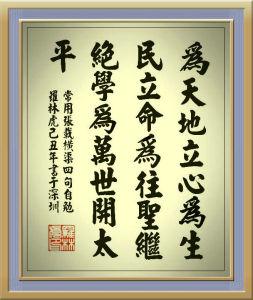 為天地立心為生
民立命為往聖繼
絕學為萬世開太
平
常用張載橫渠四句自勉
羅林虎己丑年書于深圳